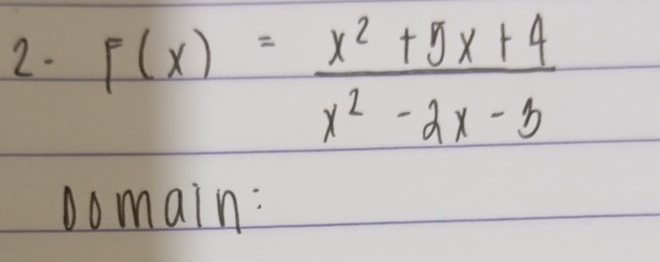 2. F(x) = x² + 5x + 4
x² - 2x - 3
Domain: